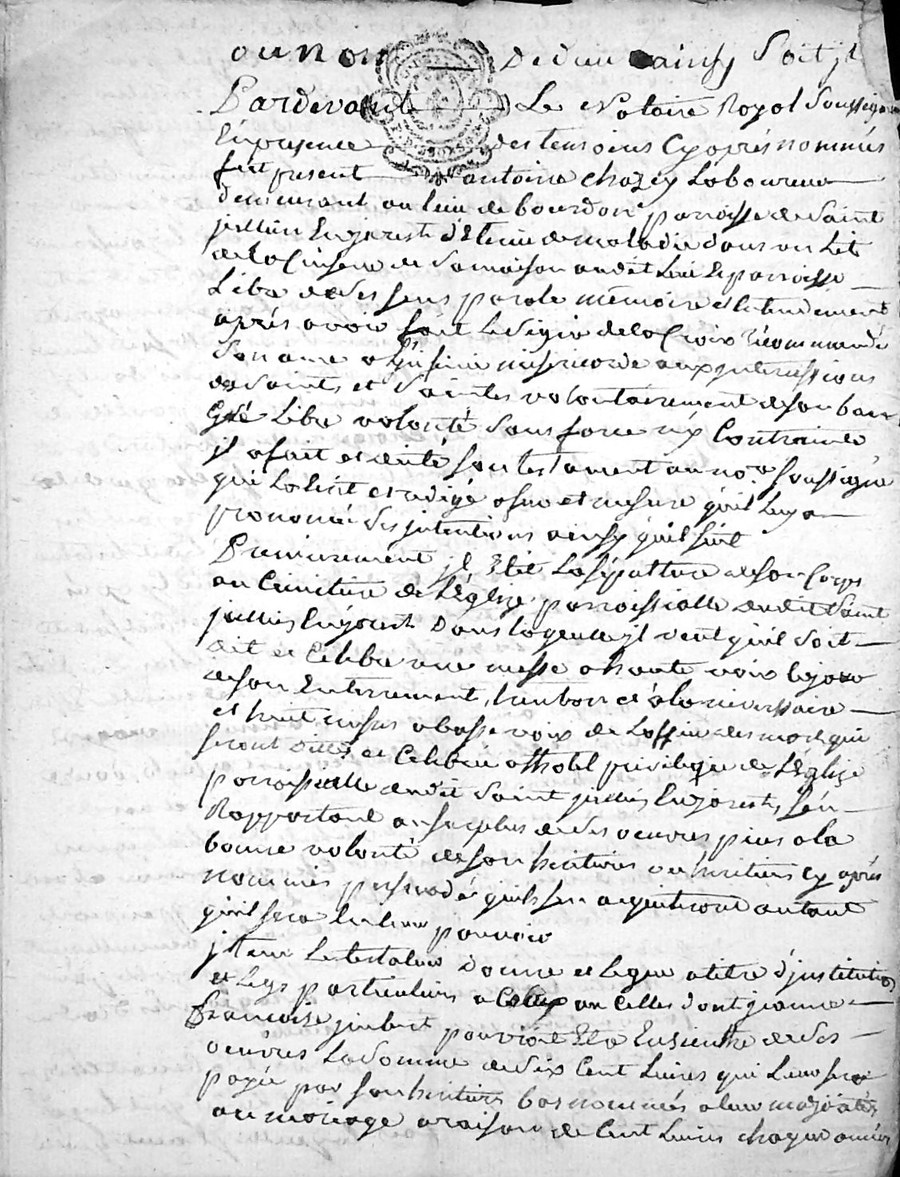 au nom De dieu ainsy soit jl
Pardevant Le Notaire Royal soussigné
En presence des temoins cy après nommés
fut present antoine chazey Laboureur
demeurant au lieu de bourdon parroisse de Saint
jullien Enjarest détenu de maladie dans un Lit
de la Cuisine de sa maison audit Lieu et parroisse
Libre de ses sens parole mémoire et entendement
après avoir fait le signe de la Croix récommandé
son ame a Linfinie misericorde aux jntercessions
des saints et saintes volontairement de son bon
Gré Libre volonté sans force ny Contrainte
jl a fait et dicté son testament au nore soussigné
qui La ecrit et redigé a fur et mesure quil luy a
prononcé ses jntentions ainsy quil suit
Premierement jl Elit La sépulture de son Corps
au Cimitiere de Léglize parroissialle dudit Saint
jullien Enjarest dans laquelle jl veut quil soit
dit et Célébré une messe a haute voix le jour
de son Enterrement, au bout de
et huit messes a basse voix de Loffice des morts qui
seront dittes et Célébrée a lhotel privilegié de Léglize
parroissialle dudit Saint jullien Enjarest, sen
Rapportant au surplus de ses oeuvres pies a la
bonne volonté de son heritiere ou heritiers cy après
nommés persuadé quils sen aquitteront autant
quil sera en leur pouvoir
jtem Le testateur donne et Legue a titre djnstitution
et Legs particuliers a Ceux ou Celles dont jeanne
francoise jmbert pourroit Etre Enceinte de ses
oeuvres La somme de six Cent Livres qui Leur sera
payée par son heritiers bas nommés a leur majorité
ou mariage a raison de Cent Livres chaque année